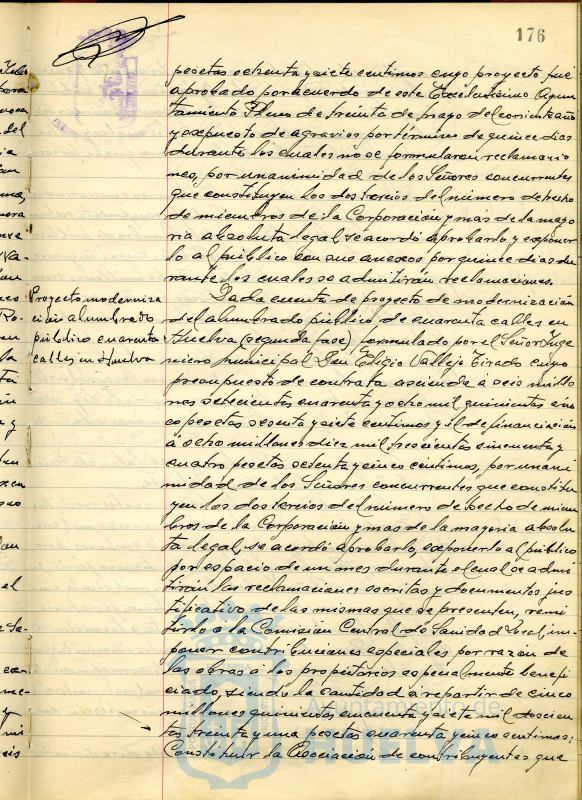 176
pesetas setenta y siete centimos cuyo proyecto fué
aprobado por acuerdo de este Excelentísimo Ayun
tamiento Pleno de treinta de mayo del corriente año
y expuesto de agravios por término de quince dias
durante los cuales no se formularon reclamacio
nes, por unanimidad de los Señores concurrentes
que constituyen los dos tercios del número de hecho
de miembros de la Corporación y mas de la mayo
ria absoluta legal se acordó aprobarlo y exponer
lo al público con sus anexos por quince dias du
rante los cuales se admitirán reclamaciones.
Proyecto moderniza
ción alumbrado
público cuarenta
calles en Huelva
Dada cuenta de proyecto de modernización
del alumbrado público de cuarenta calles en
Huelva (segunda fase) formulado por el Señor Inge
niero municipal Don Eligio Vallejo Tirado cuyo
presupuesto de contrata asciende á seis millo
nes setecientas cuarenta y ocho mil quinientas cin
co pesetas sesenta y siete centimos y el de financiación
á ocho millones diez mil trescientas cincuenta y
cuatro pesetas setenta y cinco centimos, por unani
midad de los Señores concurrentes que constitu
yen los dos tercios del número de hecho de miem
bros de la Corporación y mas de la mayoria absolu
ta legal, se acordó aprobarlo, exponerlo al público
por espacio de un mes durante el cual se admi
tirán las reclamaciones escritas y documentos jus
tificativo de las mismas que se presenten, remi
tirlo a la Comisión Central de Sanidad Local, im
poner contribuciones especiales por razón de
las obras á los propietarios especialmente benefi
ciado, siendo la cantidad á repartir de cinco
millones quinientas cincuenta y siete mil doscien
tas treinta y una pesetas cuarenta y cinco centimos;
Constituir la Asociación de contribuyentes que
Ayuntamiento de
HUELVA